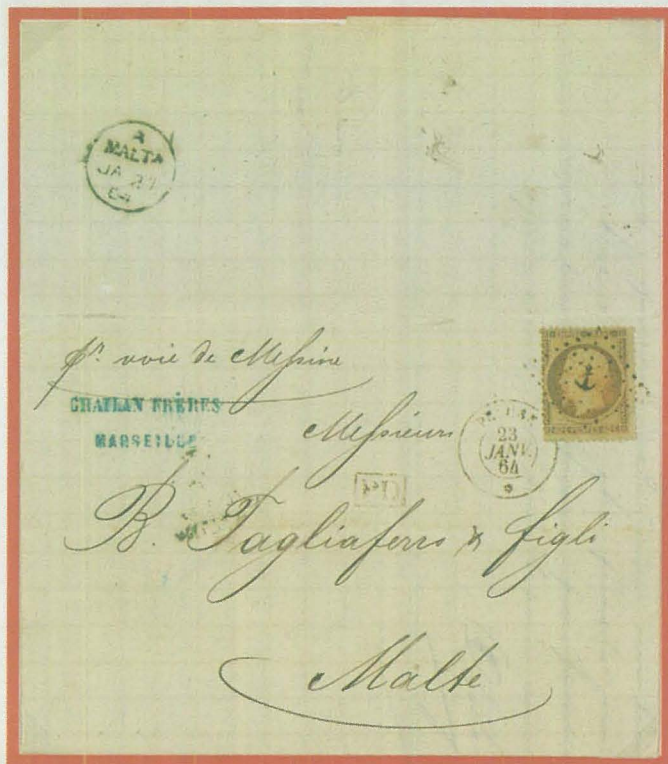 A
MALTA
JA 27
64
pr voie de Messine
CHATLAN FRÈRES
MARSEILLE
Messieurs
23
JANV.
64
PD
B. Tagliaferro & figli
Malte